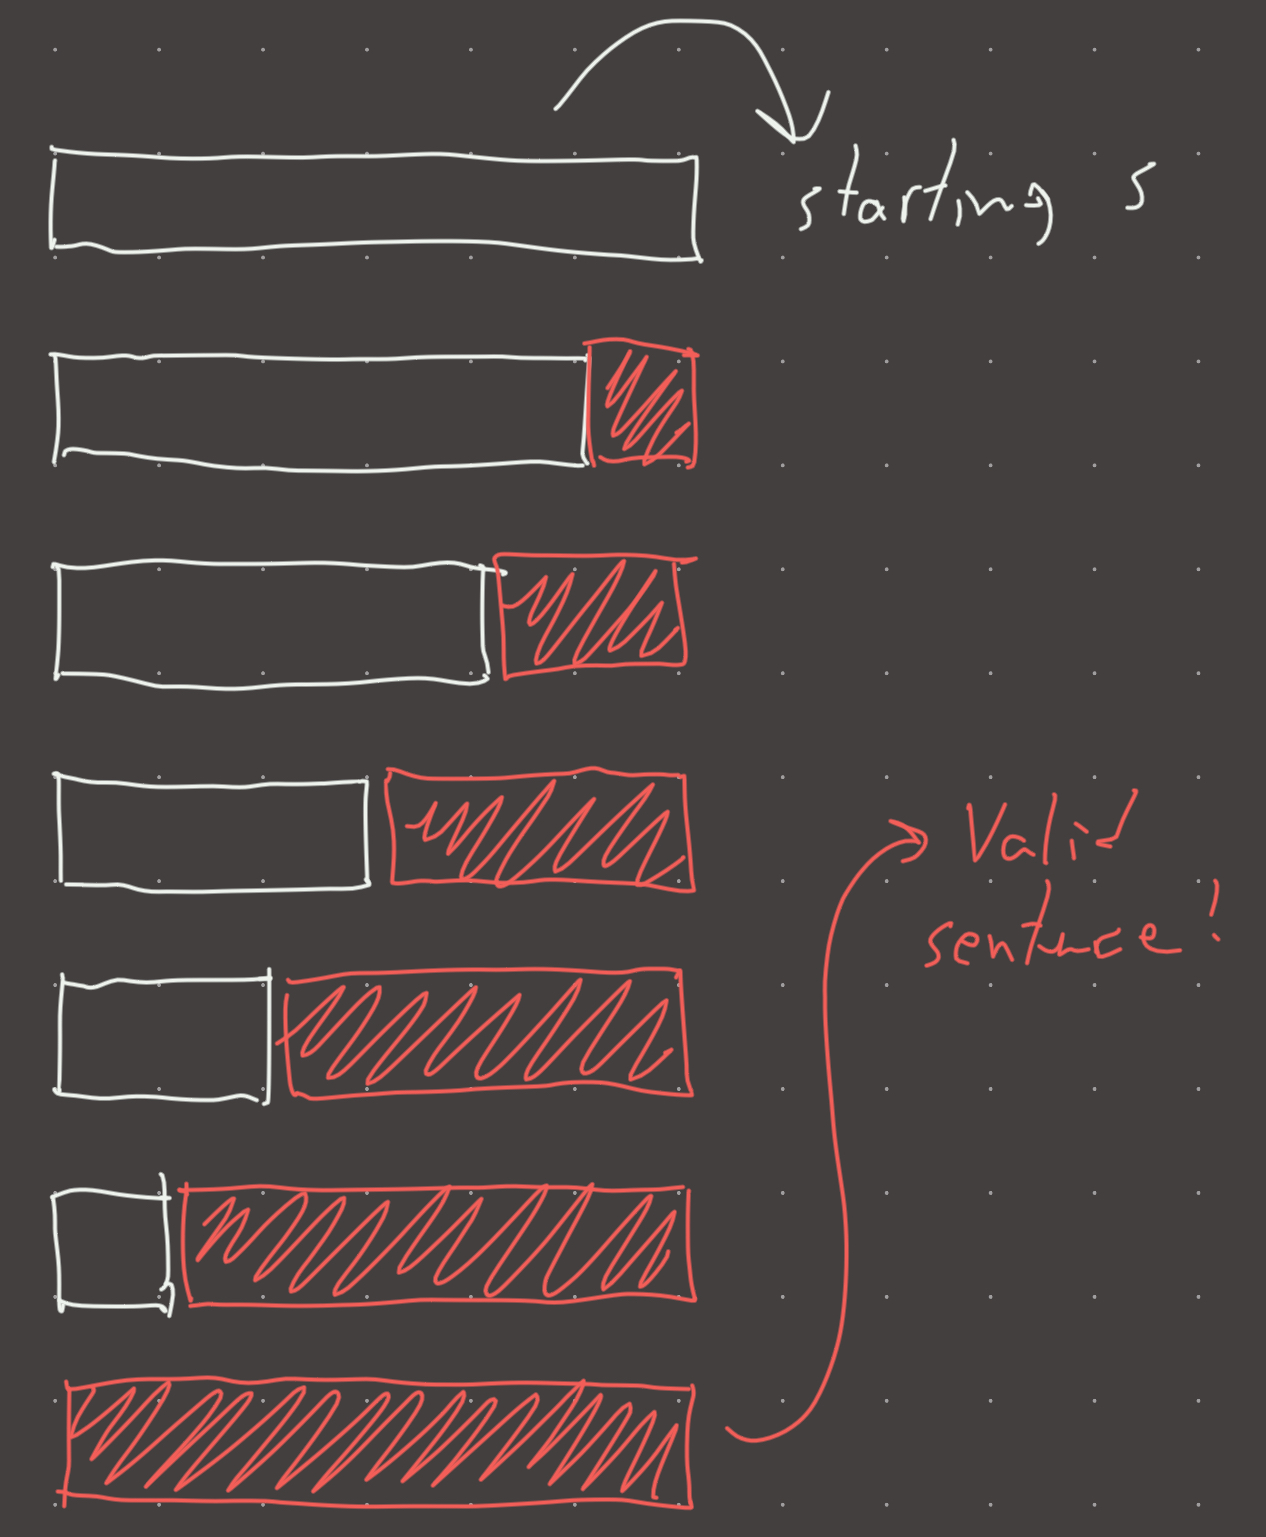 starting s
Valid
sentence!